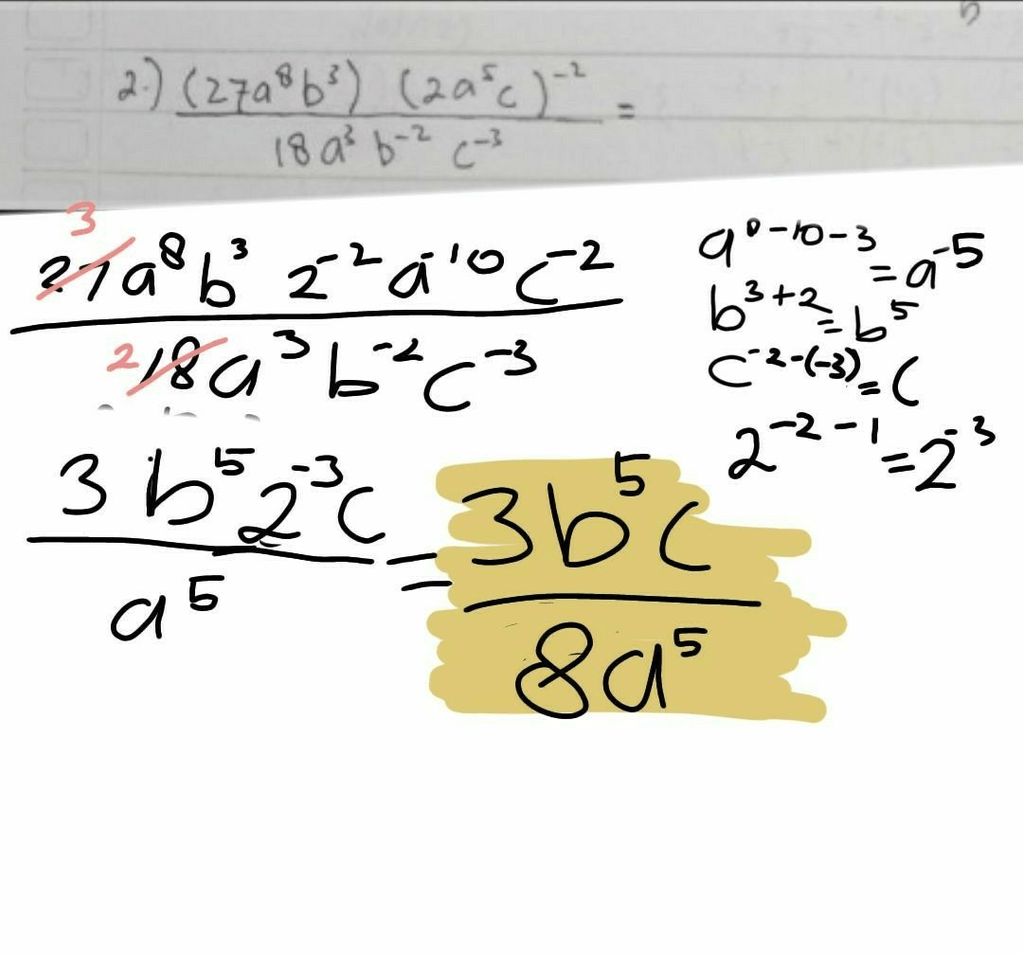 5
2.) (27a⁸b³) (2a⁵c)⁻² =
18a³ b⁻² c⁻³
3
27a⁸b³ 2⁻²a⁻¹⁰c⁻²
2 18a³b⁻²c⁻³
a⁸⁻¹⁰⁻³ = a⁻⁵
b³⁺² = b⁵
c⁻²⁻⁽⁻³⁾ = c
2⁻²⁻¹ = 2⁻³
3b⁵2⁻³c = 3b⁵c
a⁵ 8a⁵